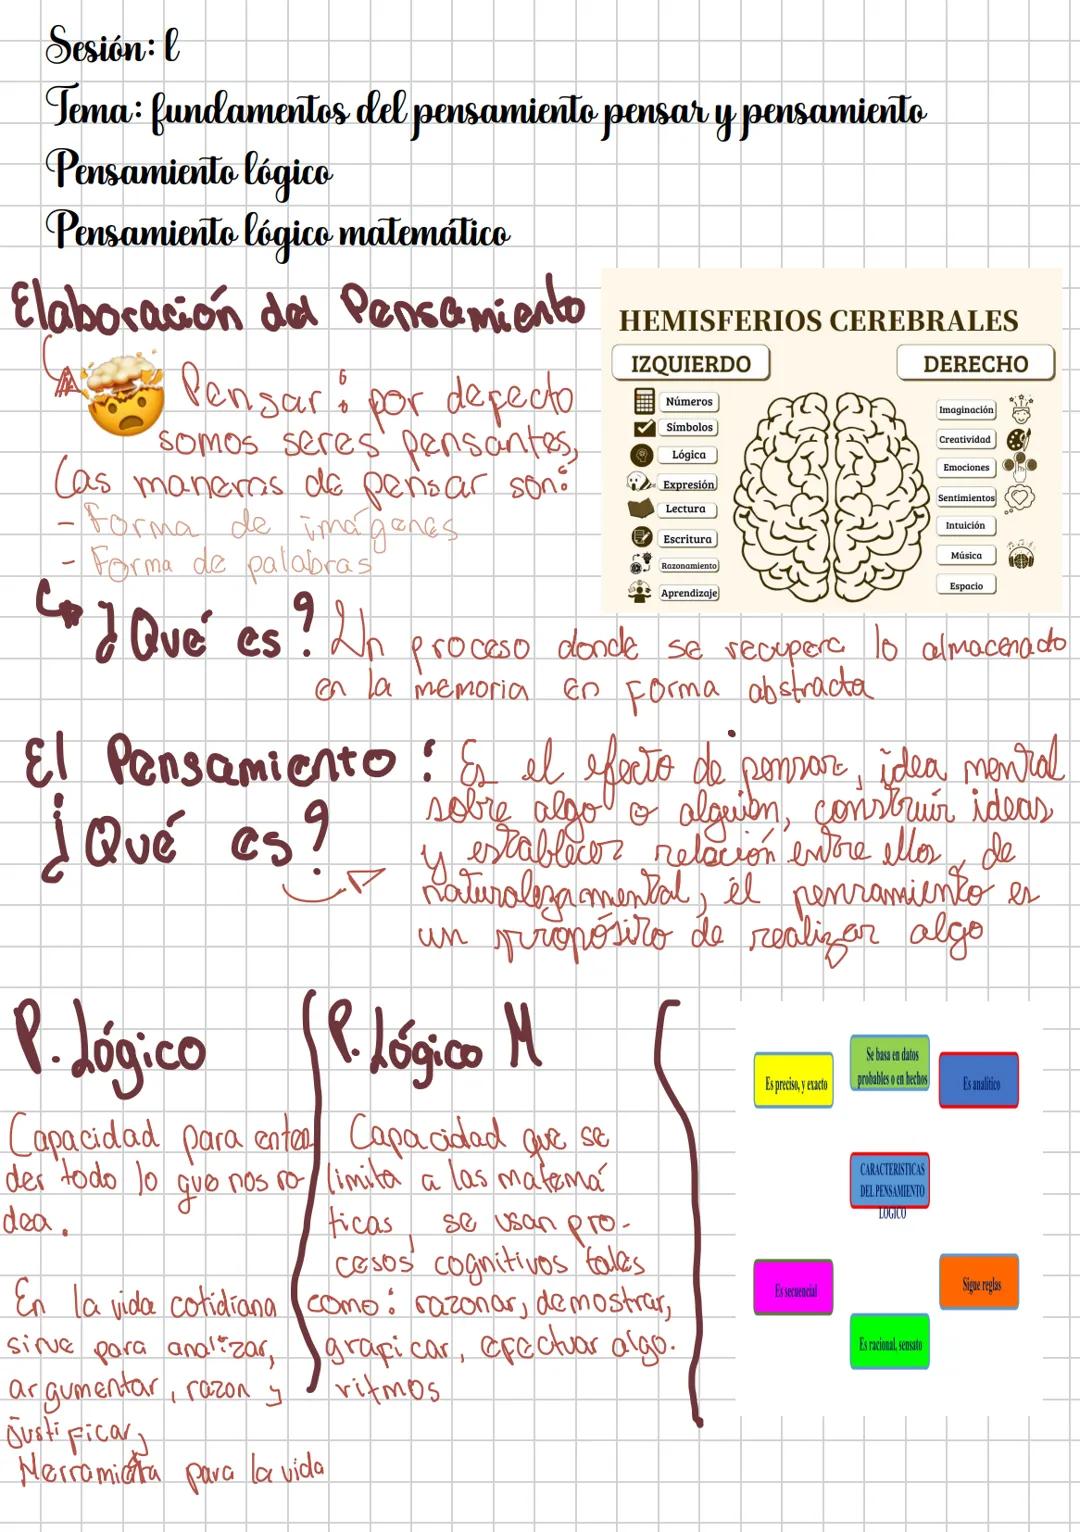 Sesión: 1
Tema: fundamentos del pensamiento pensar y pensamiento
Pensamiento lógico
Pensamiento lógico matemático
Elaboración del Pensamiento
Pensar: por defecto
somos seres pensantes,
las maneras de pensar son:
- Forma de imágenes
- Forma de palabras
¿Qué es? Un proceso donde se recupera lo almacenado
en la memoria en forma abstracta
HEMISFERIOS CEREBRALES
IZQUIERDO
Números
Símbolos
Lógica
Expresión
Lectura
Escritura
Razonamiento
Aprendizaje
DERECHO
Imaginación
Creatividad
Emociones
Sentimientos
Intuición
Música
Espacio
El Pensamiento:
¿Qué es?
Es el efecto de pensar, idea mental
sobre algo o alguien, construir ideas
y establecer relación entre ellos, de
naturaleza mental, él pensamiento es
un propósito de realizar algo
P. Lógico
Capacidad para enten
der todo lo que nos ro-
dea.
En la vida cotidiana
sirve para analizar,
argumentar, razon y
justificar,
Herramienta para la vida
P. Lógico M
Capacidad que se
limita a las matemá
ticas, se usan pro-
cesos cognitivos tales
como: razonar, demostrar,
graficar, efectuar algo.
ritmos
Es preciso, y exacto
Se basa en datos
probables o en hechos
Es analitico
CARACTERISTICAS
DEL PENSAMIENTO
LOGICO
Es secuencial
Sigue reglas
Es racional, sensato